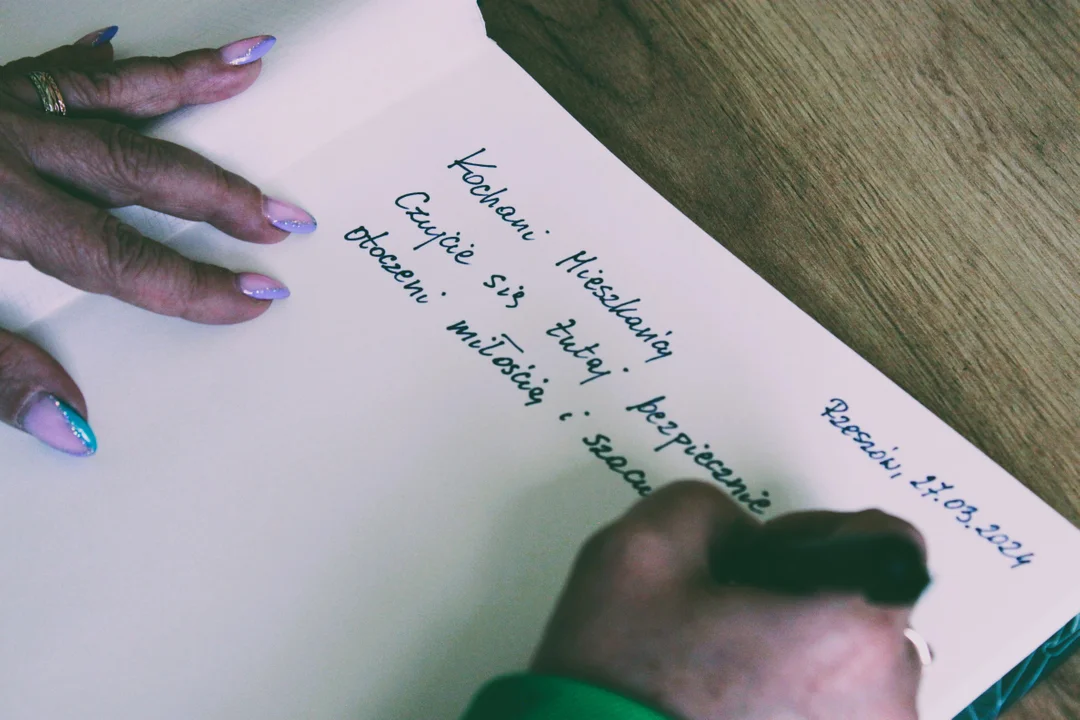 Rzeszów, 27.03.2024
Kochani Mieszkańcy
Czujcie się tutaj bezpiecznie
otoczeni miłością i szacu